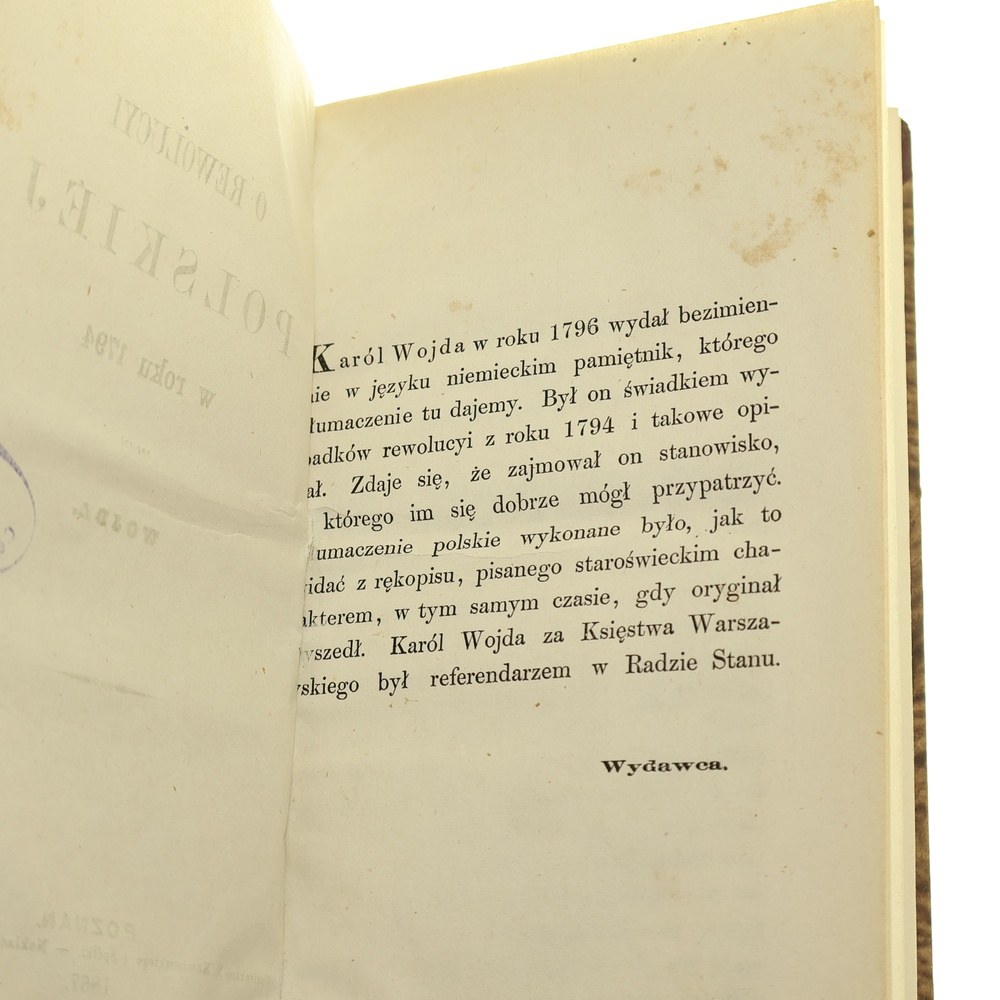 O REWOLUCYI
POLSKIEJ
w roku 1794
WOJDA.
POZNAŃ.
1867.
Karól Wojda w roku 1796 wydał bezimien-
nie w języku niemieckim pamiętnik, którego
tłumaczenie tu dajemy. Był on świadkiem wy-
padków rewolucyi z roku 1794 i takowe opi-
ał. Zdaje się, że zajmował on stanowisko,
którego im się dobrze mógł przypatrzyć.
łumaczenie polskie wykonane było, jak to
idać z rękopisu, pisanego staroświeckim cha-
akterem, w tym samym czasie, gdy oryginał
yszedł. Karól Wojda za Księstwa Warsza-
wskiego był referendarzem w Radzie Stanu.
Wydawca.